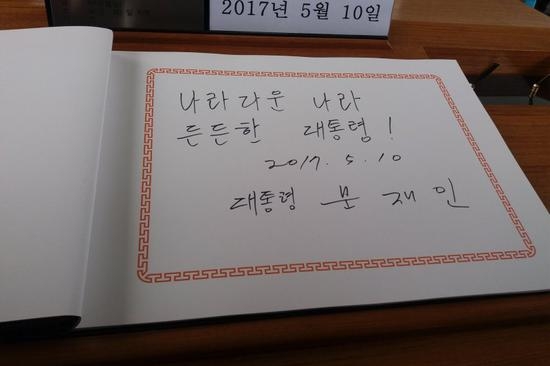 2017년 5월 10일
나라다운 나라
든든한 대통령!
2017. 5. 10
대통령 문 재 인